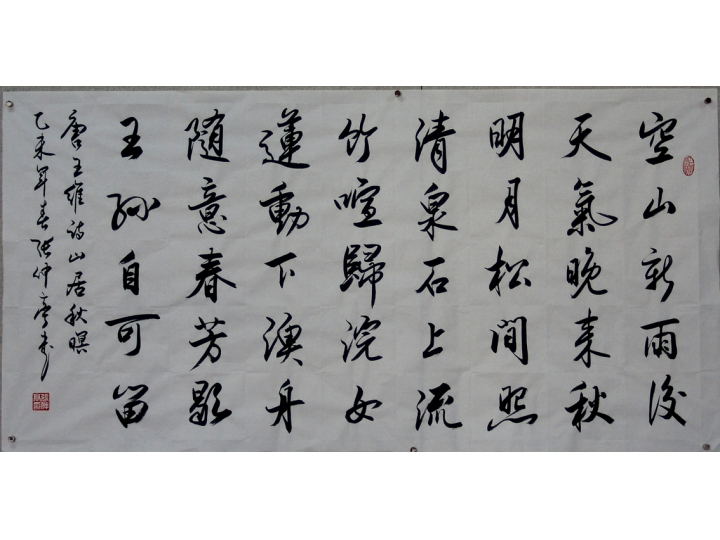 空山新雨後
天氣晚来秋
明月松間照
清泉石上流
竹喧歸浣女
蓮動下漁舟
隨意春芳歇
王孫自可留
唐王維詩山居秋暝
乙未年春張仲亭书